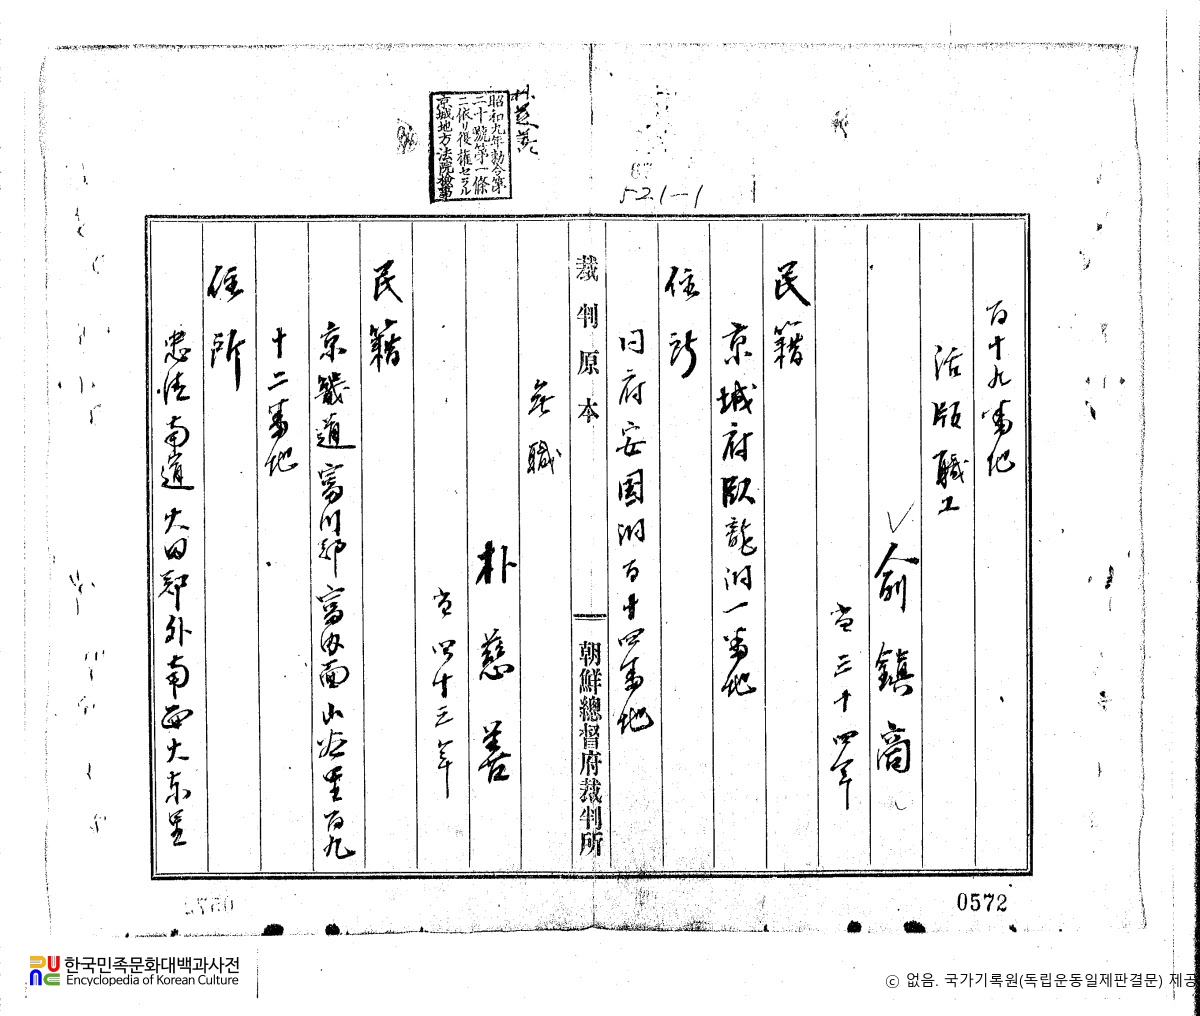 昭和九年勅令第
二十號第一條
ニ依リ復權セラル
京城地方法院檢事
朴慈善
521-1
百十九番地
活版職工
俞鎭商
當三十四年
民籍
京城府臥龍洞一番地
住所
同府安国洞百十四番地
裁判原本
朝鮮總督府裁判所
無職
朴慈善
當四十三年
民籍
京畿道富川郡富内面山谷里百九
十二番地
住所
忠清南道大田郡外南面大东里
0572
한국민족문화대백과사전
Encyclopedia of Korean Culture
© 없음. 국가기록원(독립운동일제판결문) 제공